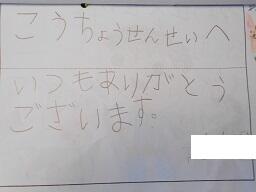 こうちょうせんせいへ
いつもありがとう
ございます。